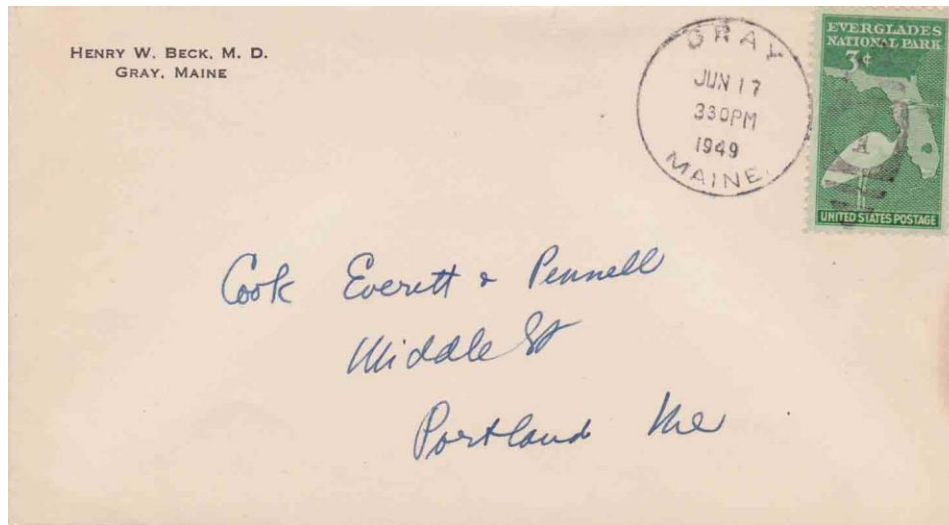 HENRY W. BECK, M. D.
GRAY, MAINE
GRAY
JUN 17
330PM
1949
MAINE.
EVERGLADES
NATIONAL PARK
3¢
UNITED STATES POSTAGE
Cook Everett & Pennell
Middle St
Portland Me